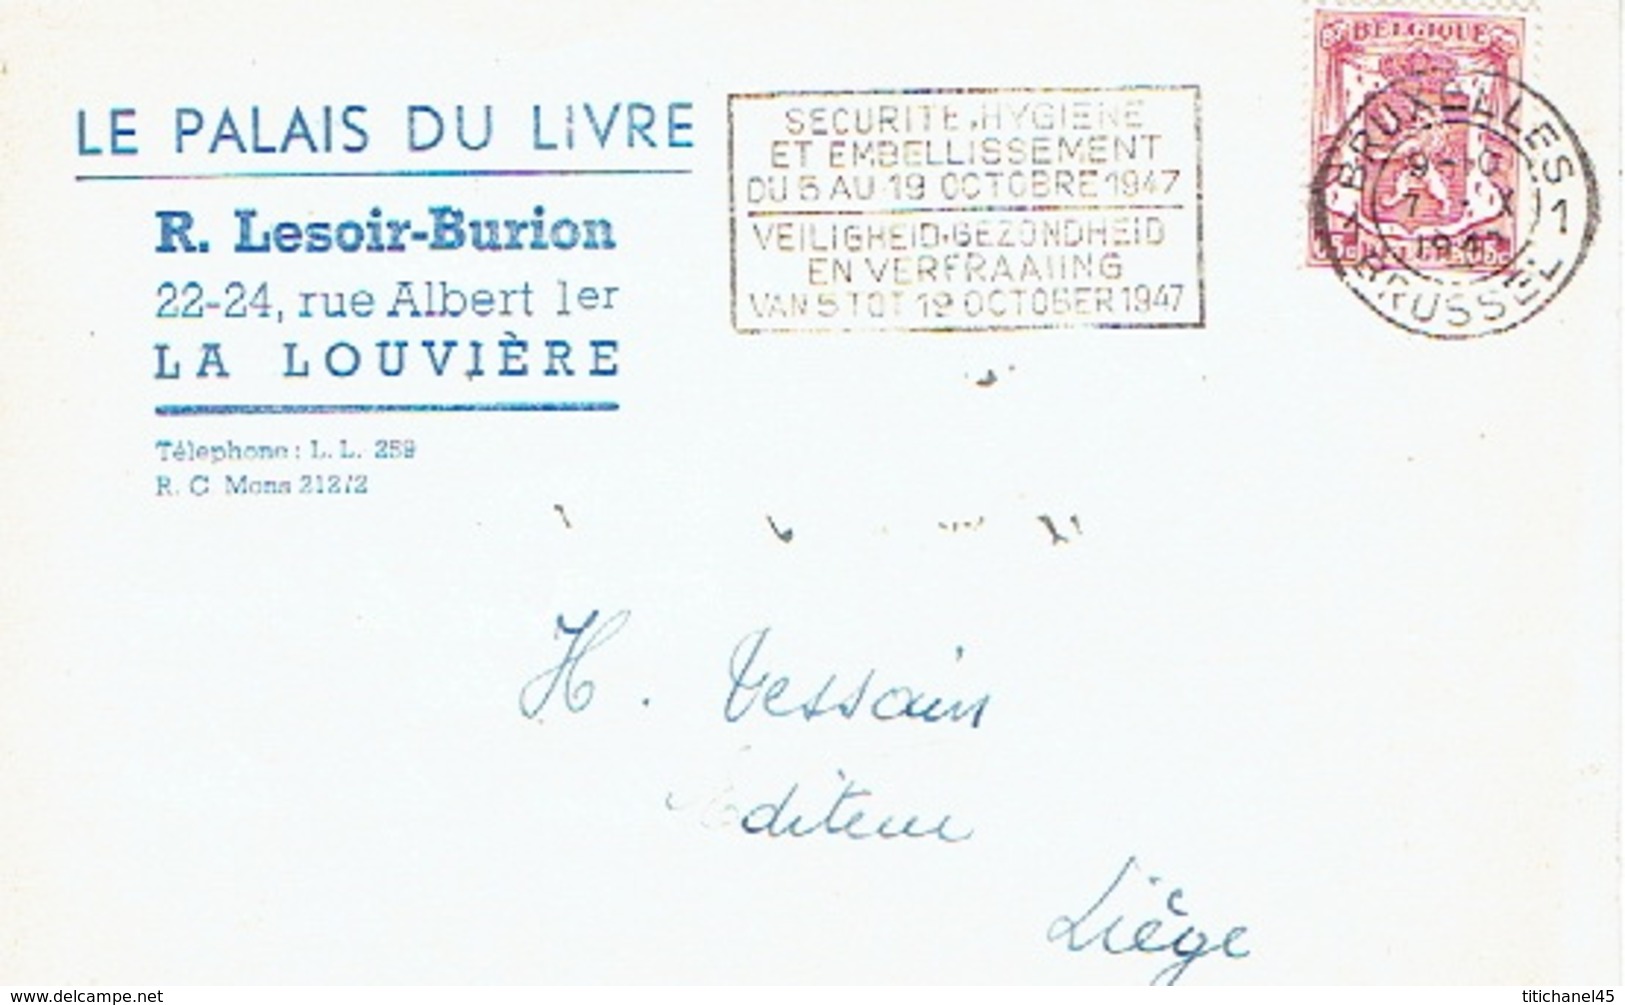 LE PALAIS DU LIVRE
R. Lesoir-Burion
22-24, rue Albert 1er
LA LOUVIÈRE
Télephone : L. L. 259
R. C Mons 21272
SECURITE, HYGIENE
ET EMBELLISSEMENT
DU 5 AU 19 OCTOBRE 1947
VEILIGHEID-GEZONDHEID
EN VERFRAAIING
VAN 5 TOT 19 OCTOBER 1947
BELGIQUE
1 BRUXELLES 1
7 - X
1947
BRUSSEL
H. Vessain
Editeur
Liège
delcampe.net
titichanel45